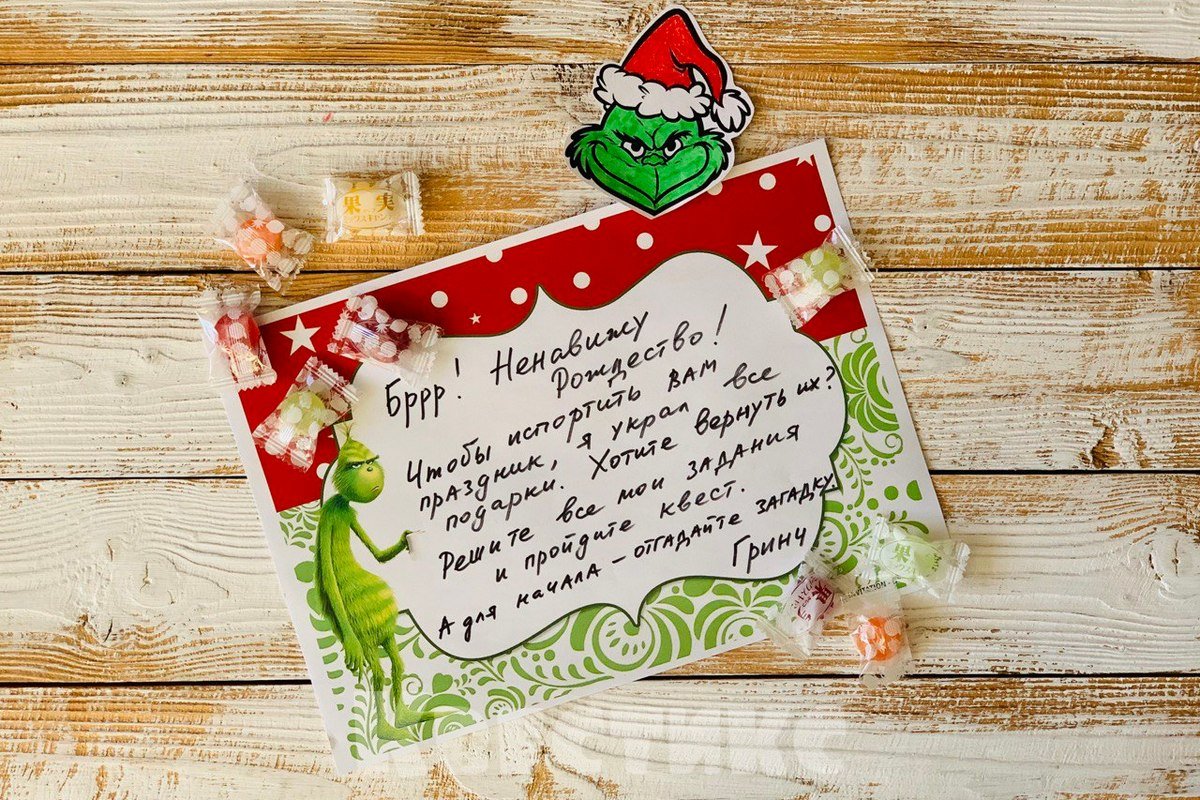 果 実
Бррр! Ненавижу
Рождество!
Чтобы испортить вам
праздник, я украл все
подарки. Хотите вернуть их?
Решите все мои задания
и пройдите квест.
А для начала – отгадайте загадку.
Гринч
果